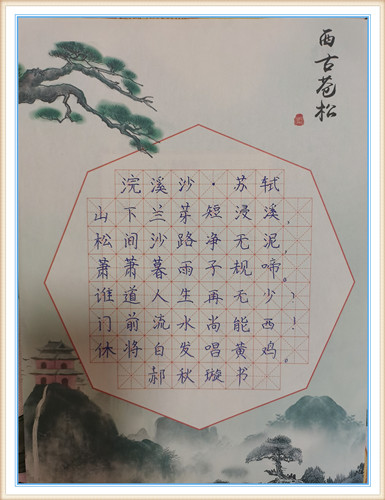 西古苍松
浣溪沙·苏轼
山下兰芽短浸溪,
松间沙路净无泥,
萧萧暮雨子规啼。
谁道人生再无少?
门前流水尚能西!
休将白发唱黄鸡。
郝秋璇书